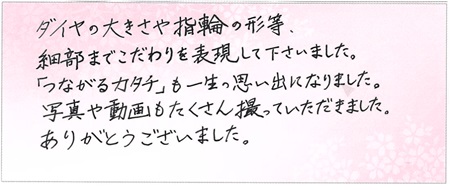 ダイヤの大きさや指輪の形等、
細部までこだわりを表現して下さいました。
「つながるカタチ」も一生の思い出になりました。
写真や動画もたくさん撮っていただきました。
ありがとうございました。